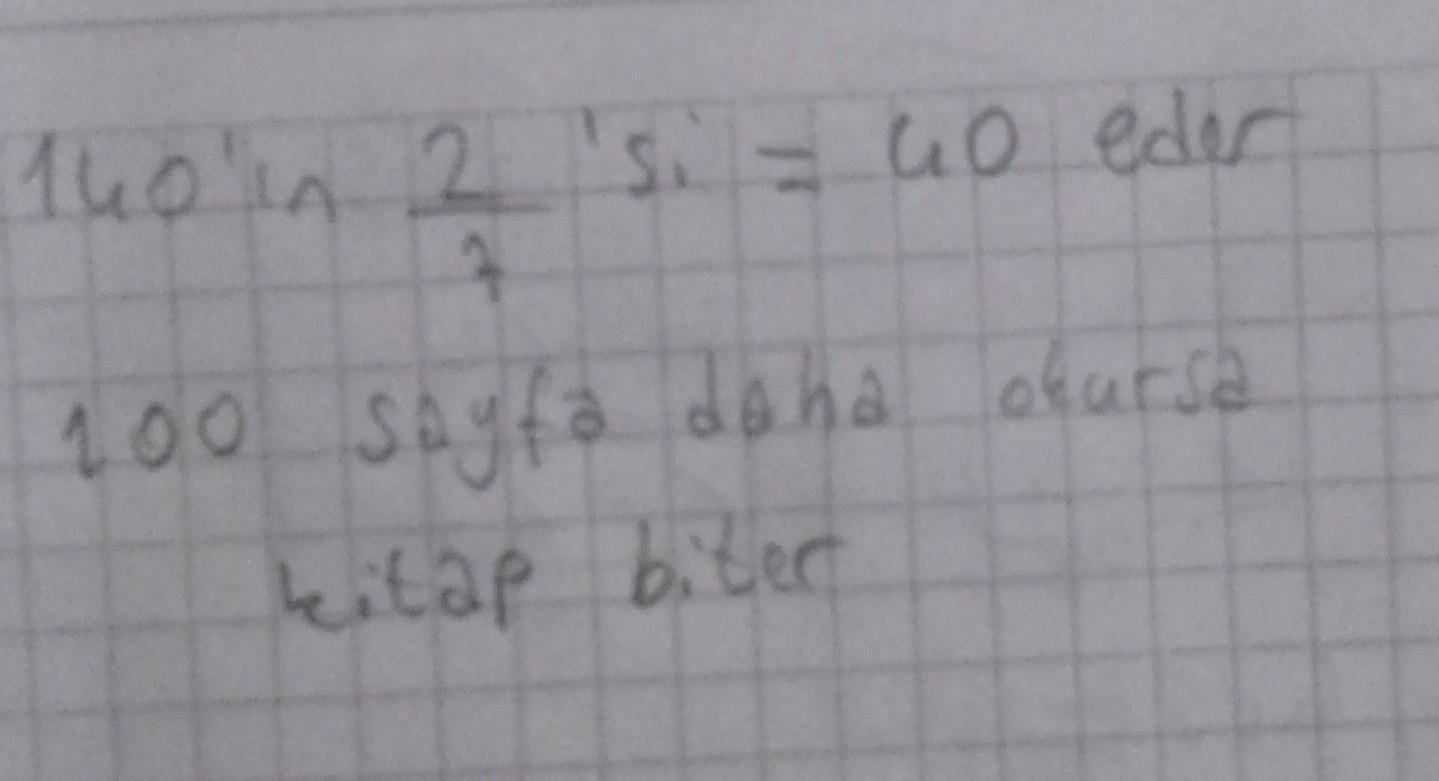 140'in 2/7 'si = 40 eder
100 sayfa daha okursa
kitap biter